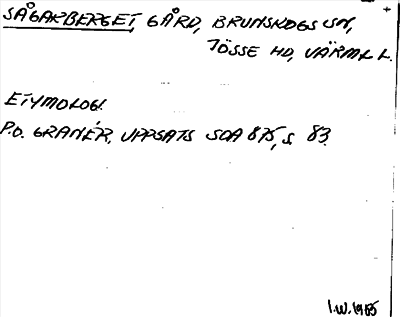 SÅGARBERGET, GÅRD, BRUNSKOGS SN,
JÖSSE HD, VÄRML L.
ETYMOLOGI.
P.O. GRANÉR, UPPSATS SOA 875, S. 83.
I.W. 1985